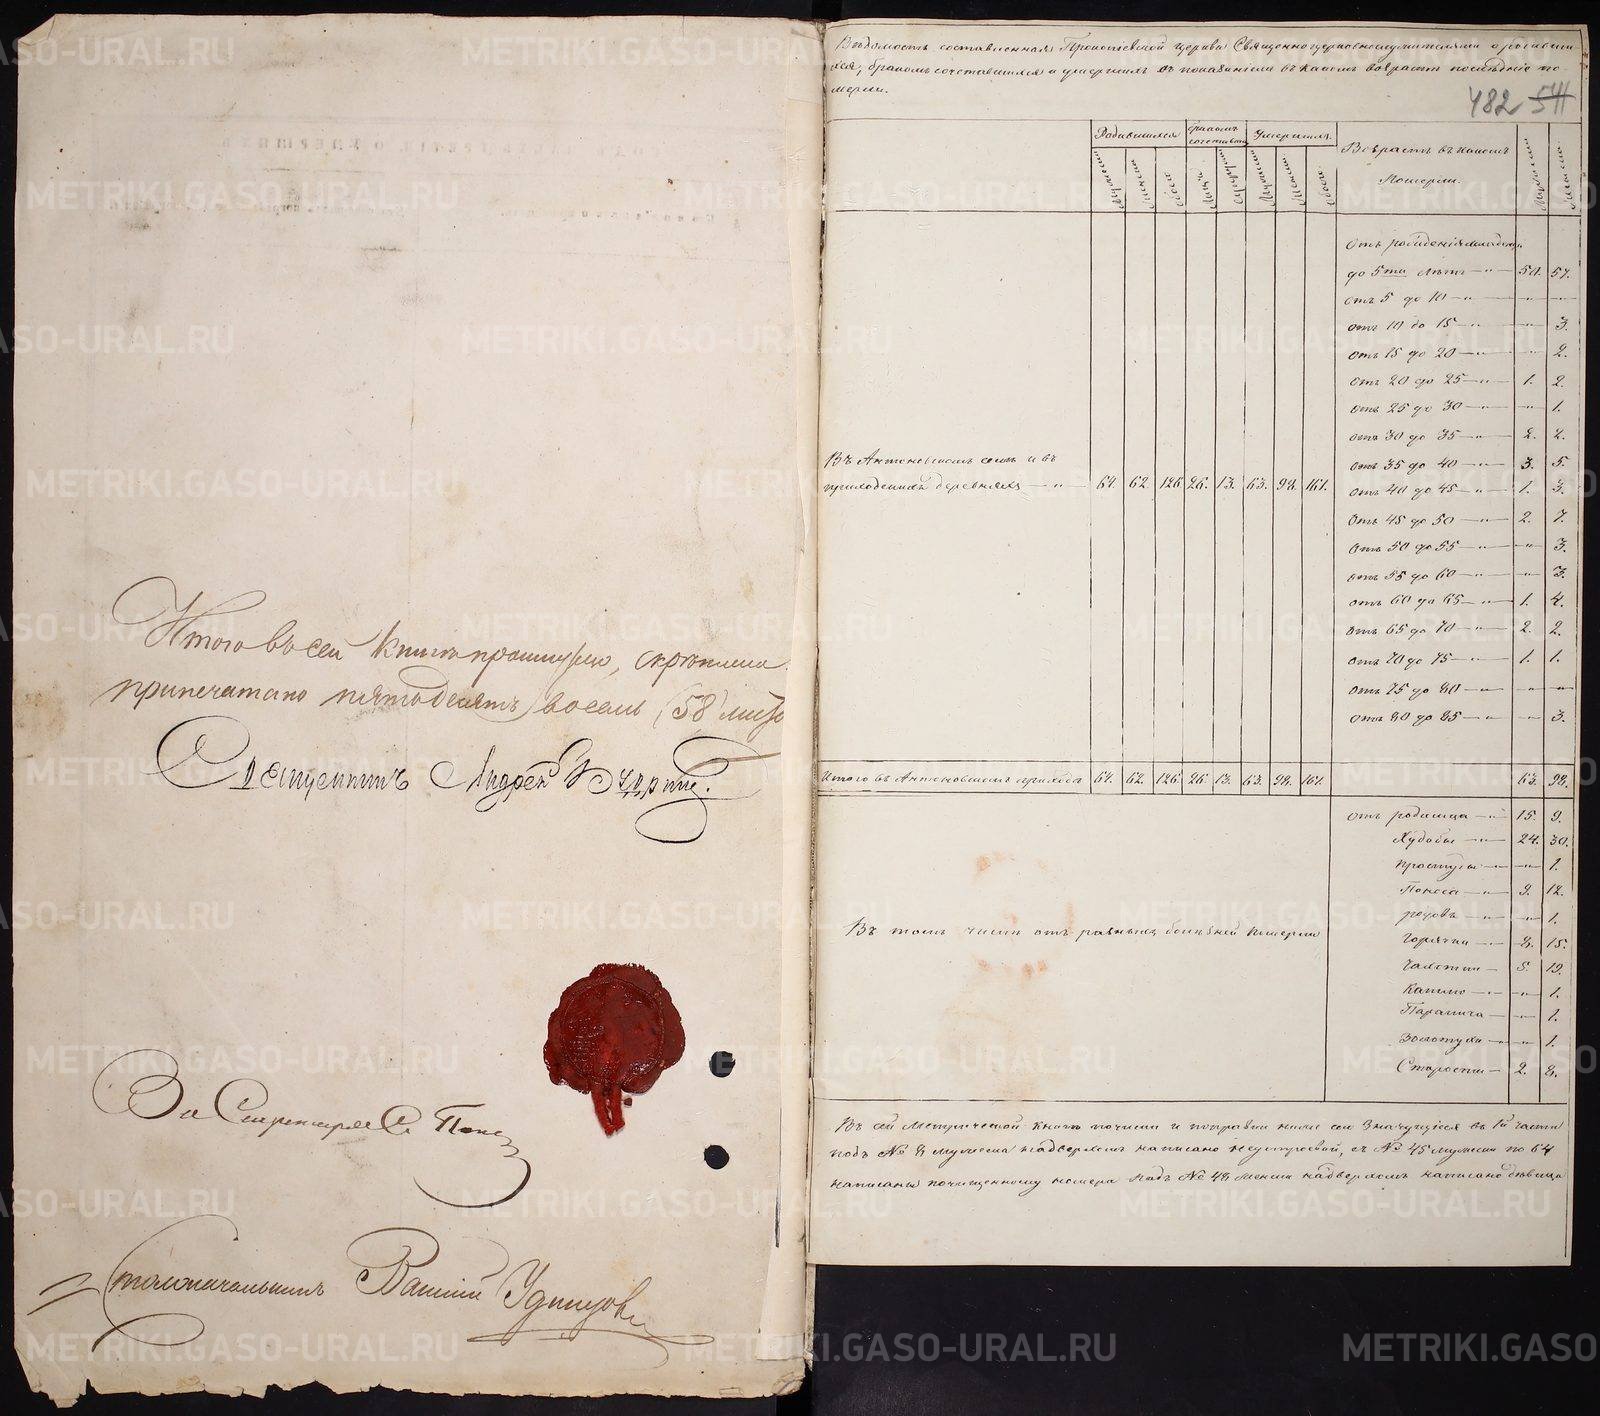 Итого въ сей книгѣ прошнур, скрѣплено
припечатано пятьдесятъ восемь (58) лист
Ассистентъ Андрей
За Секретаря
Столоначальникъ Василій Удинцовъ
Вѣдомость составленная Прокопіевской церкви Священноцерковнослужителями о родивши
хся, бракомъ сочетавшихся и умершихъ съ показаніемъ въ какомъ возрастѣ послѣдніе по
мерли.
482 541
Родившихся бракомъ сочетавш Умершихъ Возрастъ въ какомъ
Померли.
Отъ рожденія младен.
до 5ти лѣтъ — „ — 50. 57.
отъ 5 до 10 — „ — „ — „
отъ 10 до 15 — „ — „ 3.
отъ 15 до 20 — „ — „ 2.
отъ 20 до 25 — „ — 1. 2.
отъ 25 до 30 — „ — „ 1.
отъ 30 до 35 — „ — 2. 2.
отъ 35 до 40 — „ — 3. 5.
Въ Антоновскомъ селѣ и въ
приходскихъ деревняхъ — „ — 64. 62. 126. 26. 13. 63. 98. 161.
отъ 40 до 45 — „ — 1. 3.
отъ 45 до 50 — „ — 2. 7.
отъ 50 до 55 — „ — „ 3.
отъ 55 до 60 — „ — „ 3.
отъ 60 до 65 — „ — 1. 4.
отъ 65 до 70 — „ — 2. 2.
отъ 70 до 75 — „ — 1. 1.
отъ 75 до 80 — „ — „ — „
отъ 80 до 85 — „ — „ 3.
Итого въ Антоновскомъ приходѣ 64. 62. 126. 26. 13. 63. 98. 161. 63. 98.
отъ родимца — „ — 15. 9.
Худобы — „ — 24. 30.
простуды — „ — „ 1.
Поноса — „ — 9. 12.
родовъ — „ — „ 1.
Въ томъ числѣ отъ разныхъ болѣзней померли
Горячки — „ — 8. 15.
Чахотки — 5. 19.
Кашлю — „ — „ 1.
Паралича — „ 1.
Золотухи — „ — „ 1.
Старости — 2. 8.
Въ сей Метрической книгѣ почистки и поправки ниже сего значущіеся въ 1й части
подъ № 8 мужеска надверхомъ написано, съ № 45 мужеска по 64
написаны почищенному номера подъ № 48 женска надверхомъ написано бывица
METRIKI.GASO-URAL.RU